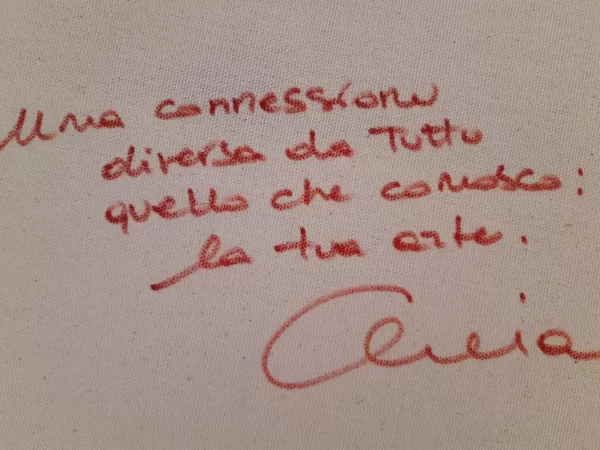 Una connessione
diversa da Tutto
quello che conosco:
la tua arte.